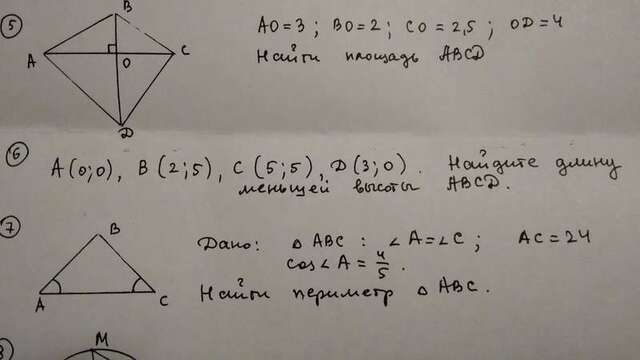 5
B
A
O
C
D
AO=3; BO=2; CO=2,5; OD=4
Найти площадь ABCD
6
A(0;0), B(2;5), C(5;5), D(3;0). Найдите длину
меньшей высоты ABCD.
7
B
A
C
Дано: △ABC: ∠A=∠C; AC=24
cos∠A=4/5.
Найти периметр △ABC.
8
M